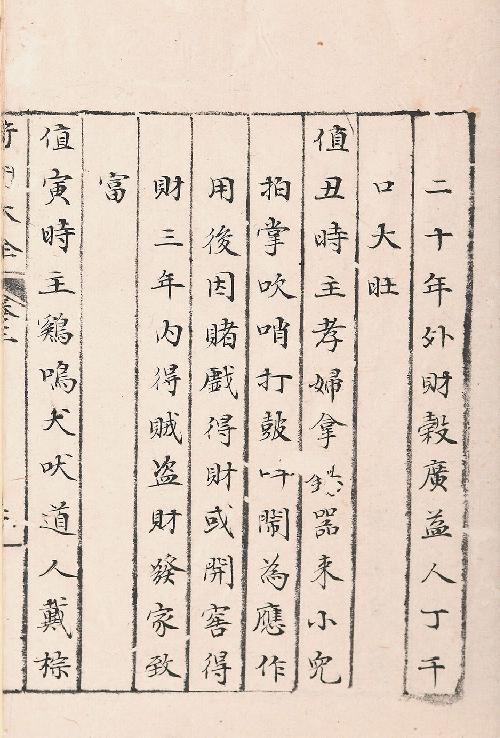 二十年外財穀廣益人丁千
口大旺
值丑時主孝婦拿器来小兒
拍掌吹哨打鼓吽鬧為應作
用後因賭戲得財或開窖得
財三年内得賊盗財發家致
富
值寅時主鷄鳴犬吠道人戴棕